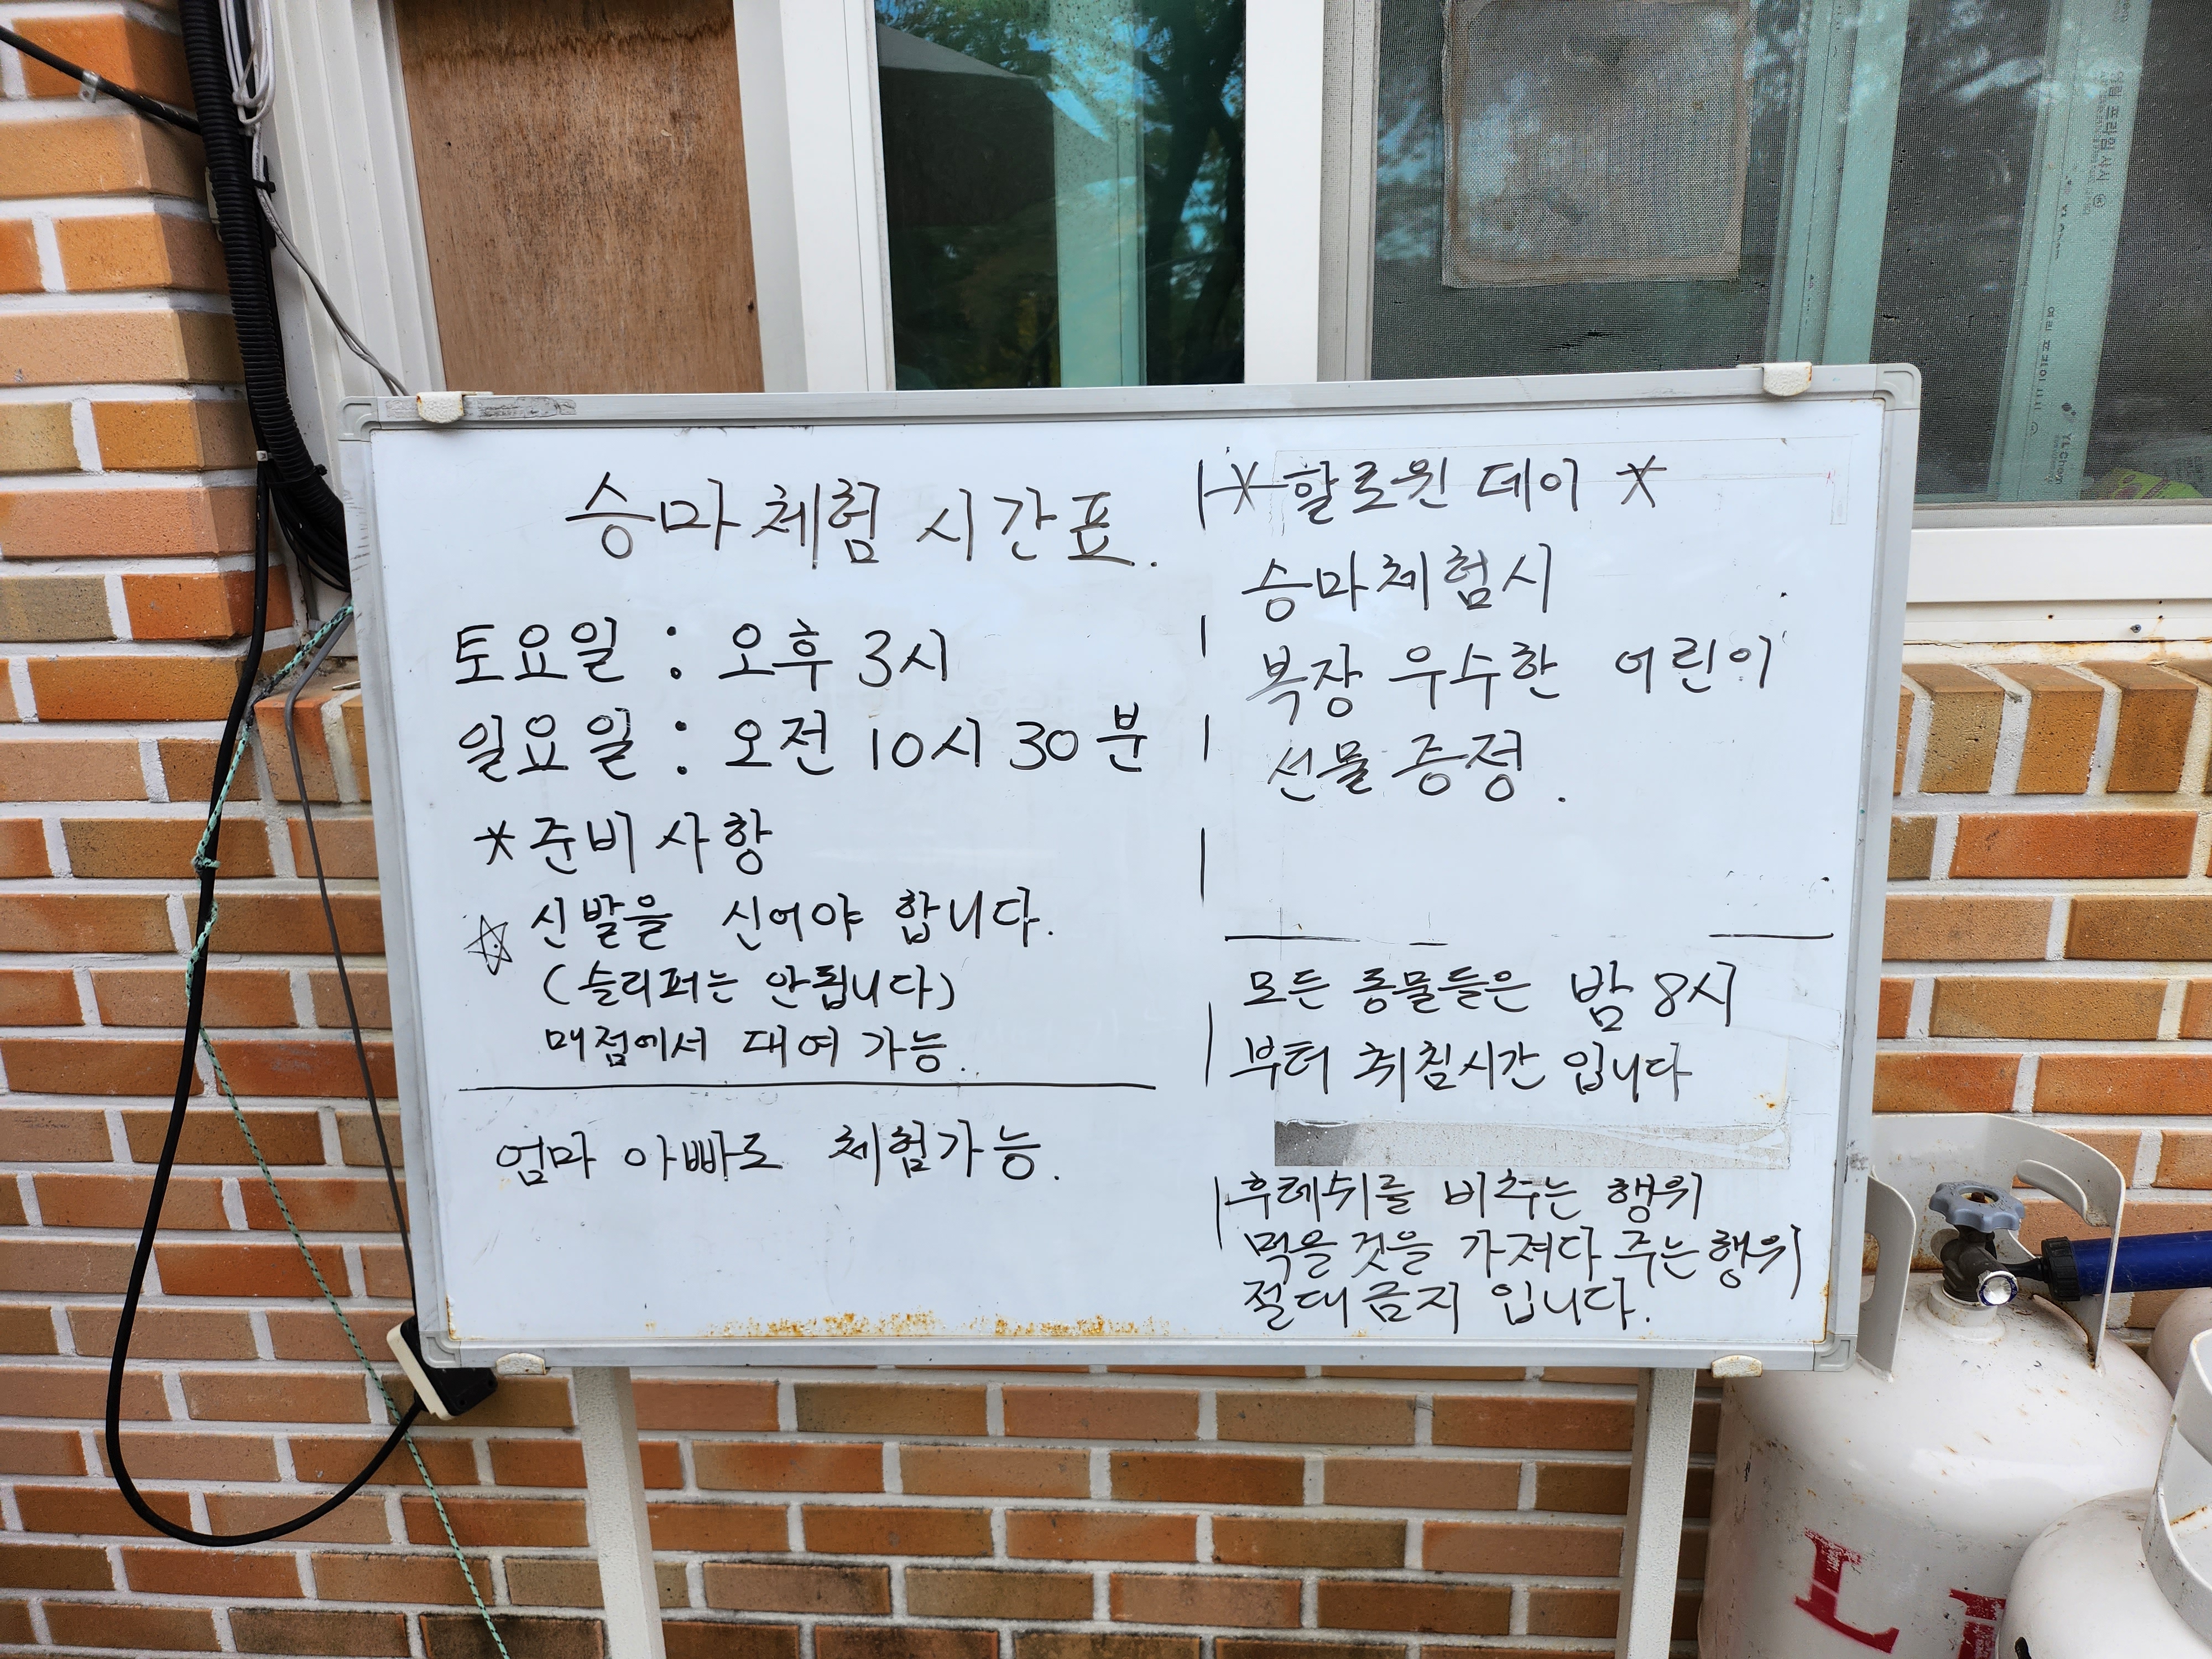 승마체험 시간표.
토요일 : 오후 3시
일요일 : 오전 10시 30분
* 준비사항
☆ 신발을 신어야 합니다.
(슬리퍼는 안됩니다)
매점에서 대여 가능.
엄마 아빠도 체험가능.
* 할로윈 데이 *
승마체험시
복장 우수한 어린이
선물 증정.
모든 동물들은 밤 8시
부터 취침시간 입니다
후레쉬를 비추는 행위
먹을것을 가져다 주는행위
절대금지 입니다.